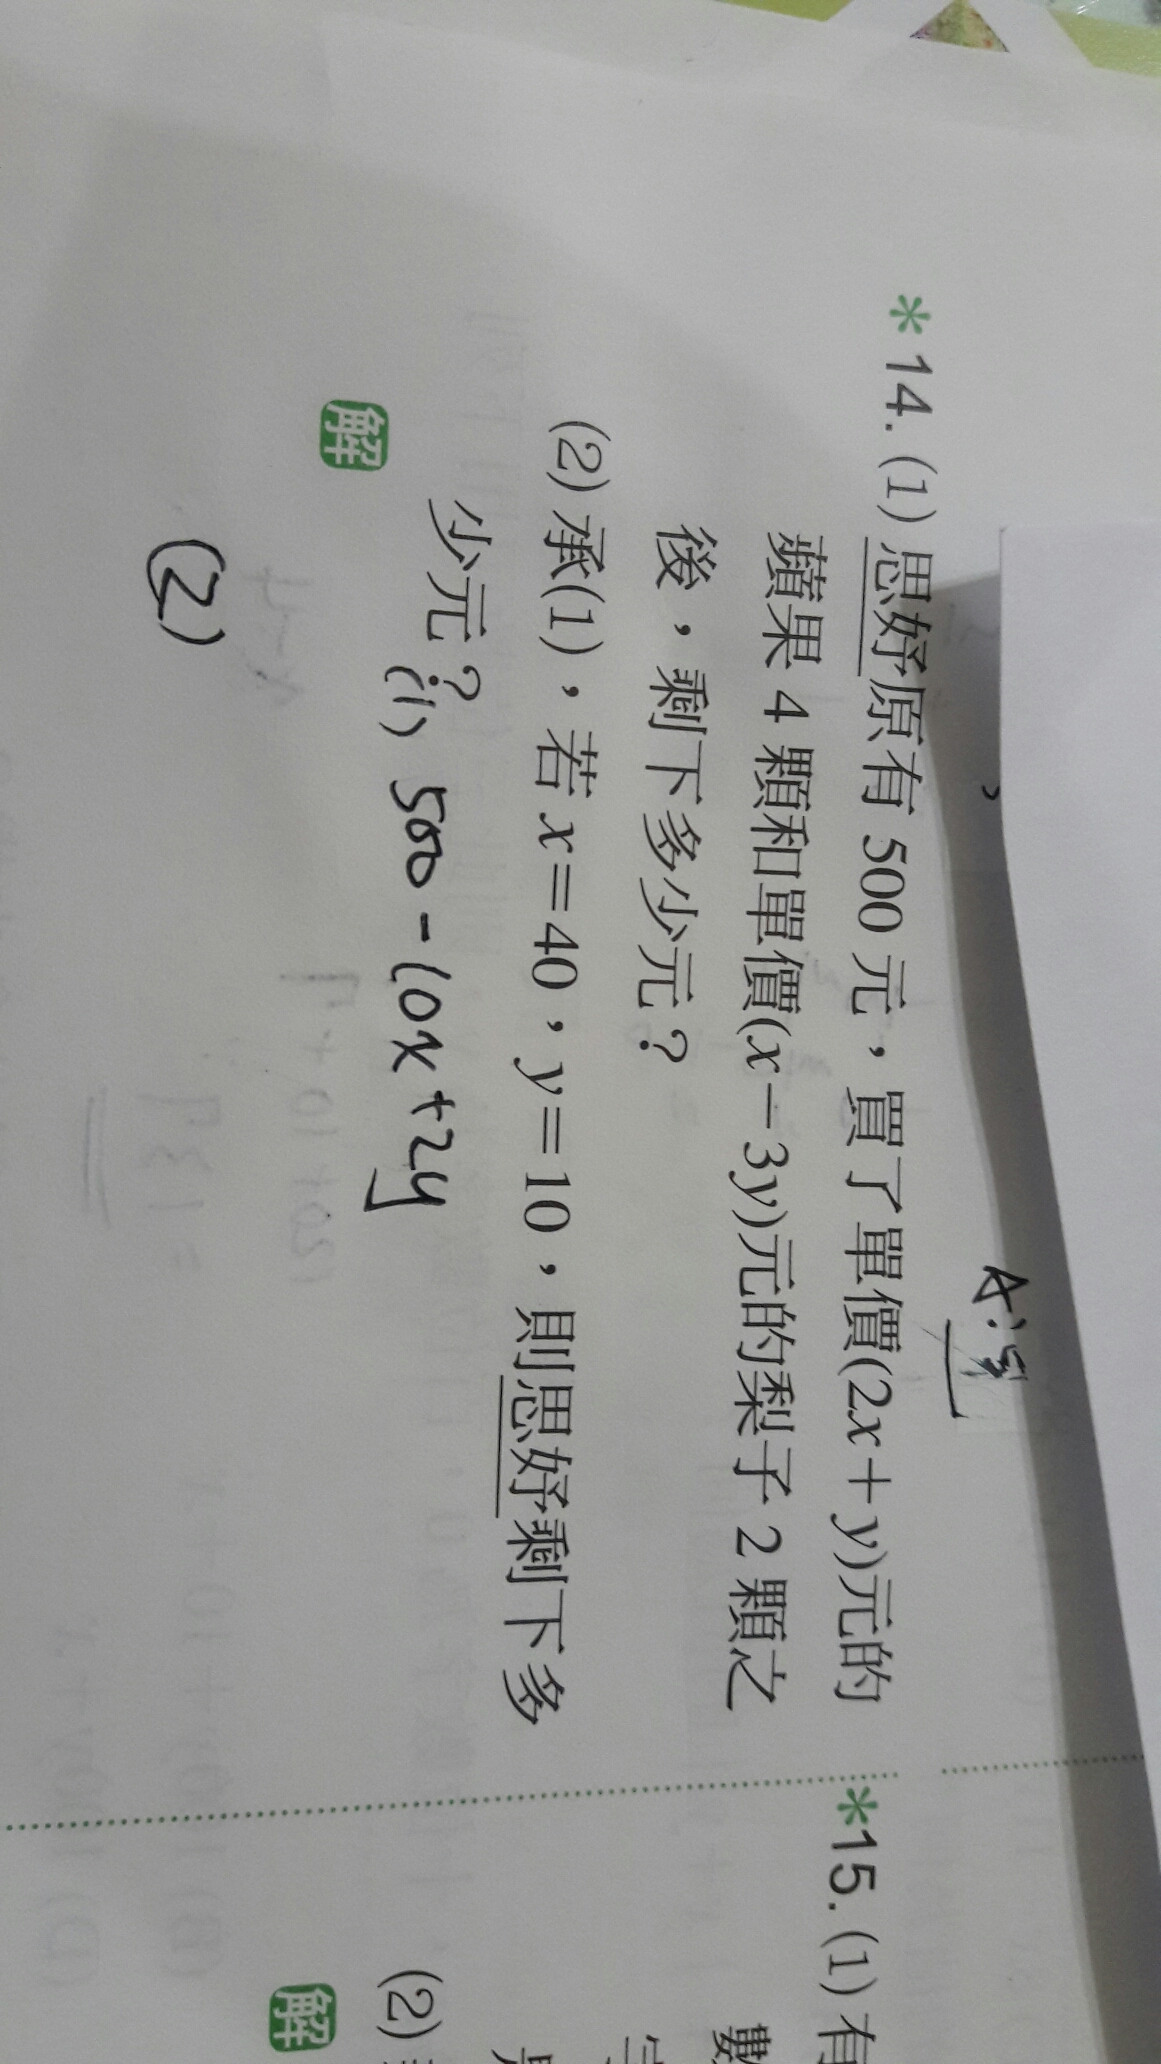 A:
*14. (1) 思妤原有 500 元，買了單價(2x＋y)元的
蘋果 4 顆和單價(x－3y)元的梨子 2 顆之
後，剩下多少元？
(2) 承(1)，若 x＝40，y＝10，則思妤剩下多
少元？
解
(1) 500 - 10x + 2y
(2)
*15. (1) 有
數
(2)
解